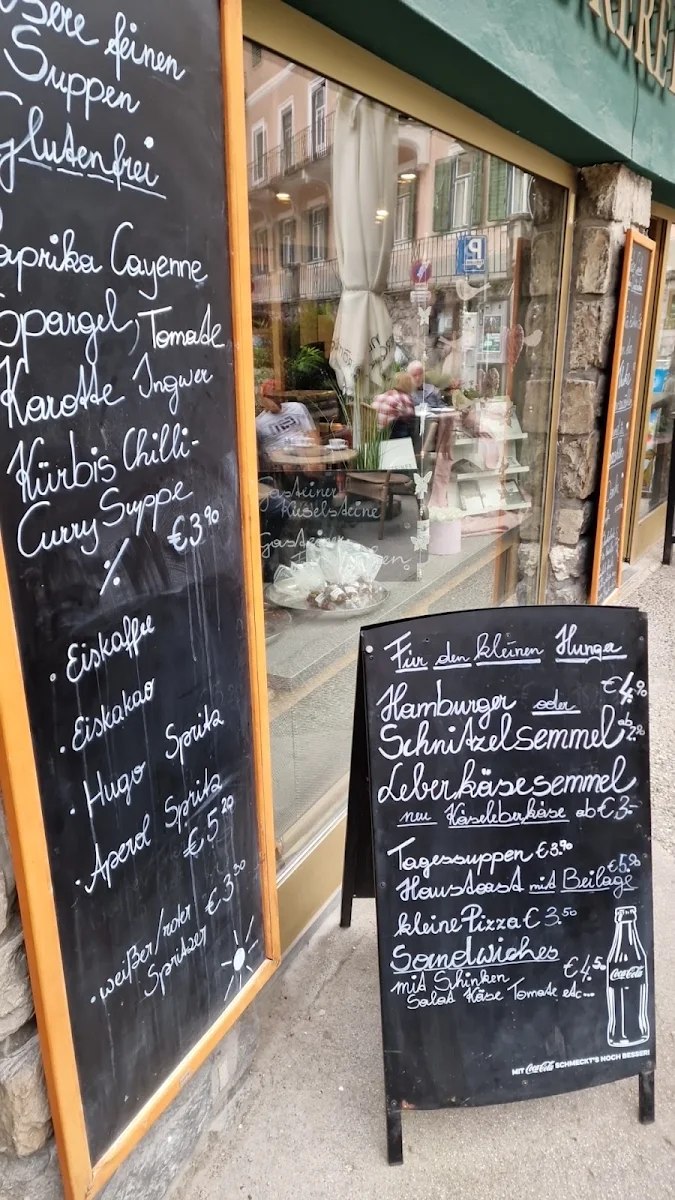 unsere feinen
Suppen
glutenfrei
Paprika Cayenne
Spargel, Tomate
Karotte Ingwer
Kürbis Chilli-
Curry Suppe
€3.90
·/.
· Eiskaffee
· Eiskakao
· Hugo Spritz
· Aperol Spritz
€5.20
· weißer/roter €3.30
Spritzer
P
Gasteiner
Kieselsteine
Gasteiner
Für den kleinen Hunger
€4.90
Hamburger oder
Schnitzelsemmel ab
Leberkäsesemmel
neu Käseleberkäse ab €3.-
Tagessuppen €3.90
Haustoast mit Beilage €5.90
kleine Pizza € 3.50
Sandwiches
mit Schinken €4.50
Salat Käse Tomate etc...
Coca-Cola
MIT Coca-Cola SCHMECKT'S NOCH BESSER!